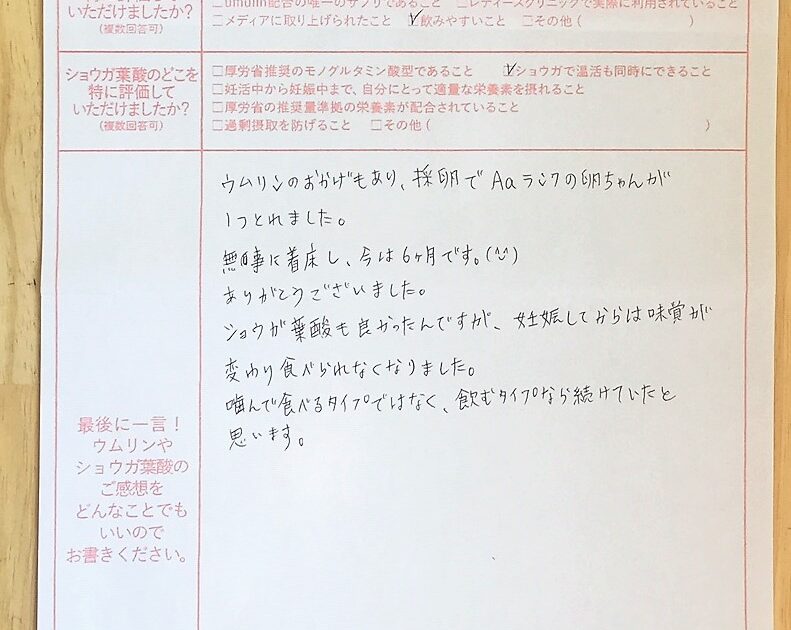 いただけましたか?
(複数回答可)
□umulin配合の唯一のサプリであること □レディースクリニックで実際に利用されていること
□メディアに取り上げられたこと ☑飲みやすいこと □その他( )
ショウガ葉酸のどこを
特に評価して
いただけましたか?
(複数回答可)
□厚労省推奨のモノグルタミン酸型であること ☑ショウガで温活も同時にできること
□妊活中から妊娠中まで、自分にとって適量な栄養素を摂れること
□厚労省の推奨量準拠の栄養素が配合されていること
□過剰摂取を防げること □その他( )
ウムリンのおかげもあり、採卵でAaランクの卵ちゃんが
1つとれました。
無事に着床し、今は6ヶ月です。(^^)
ありがとうございました。
ショウガ葉酸も良かったんですが、妊娠してからは味覚が
変わり食べられなくなりました。
噛んで食べるタイプではなく、飲むタイプなら続けていたと
思います。
最後に一言!
ウムリンや
ショウガ葉酸の
ご感想を
どんなことでも
いいので
お書きください。